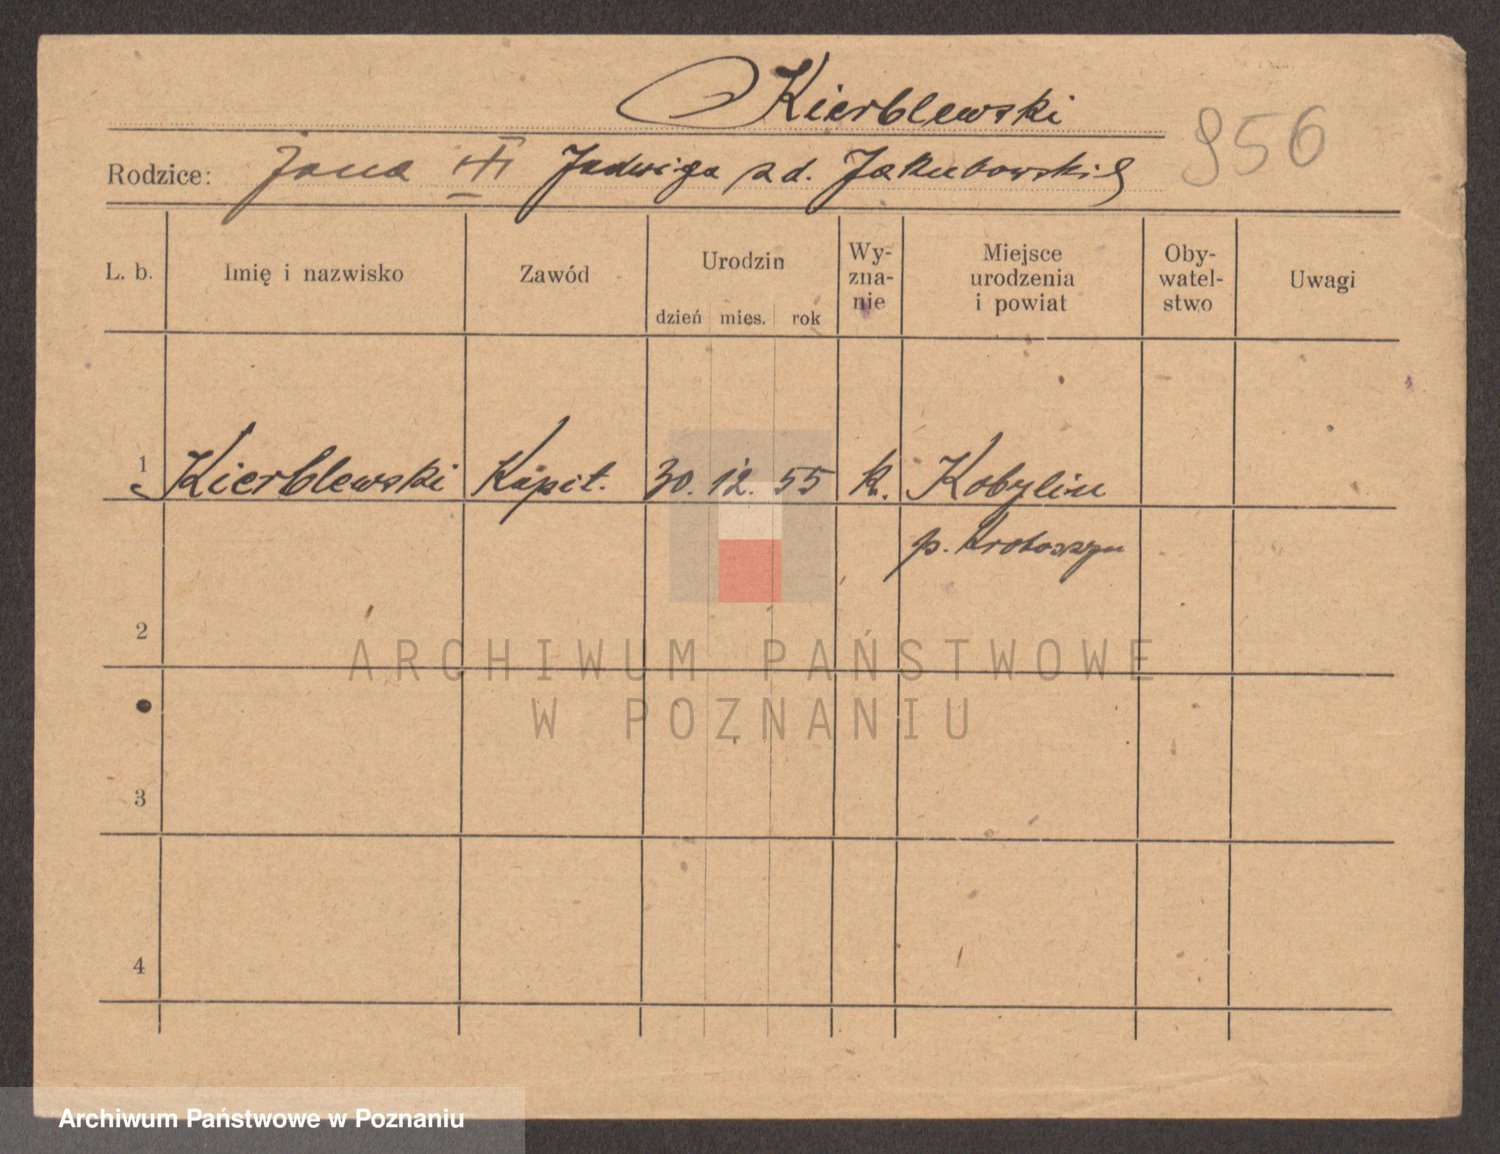 Kierblewski
956
Rodzice: Jana III Jadwiga z d. Jakubowskich
L. b. Imię i nazwisko Zawód Urodzin dzień mies. rok Wy-zna-nie Miejsce urodzenia i powiat Oby-watel-stwo Uwagi
1 Kierblewski Kapit. 30. 12. 55 k. Kobylin
p. Krotoszyn
2
ARCHIWUM PAŃSTWOWE
W POZNANIU
3
4
Archiwum Państwowe w Poznaniu